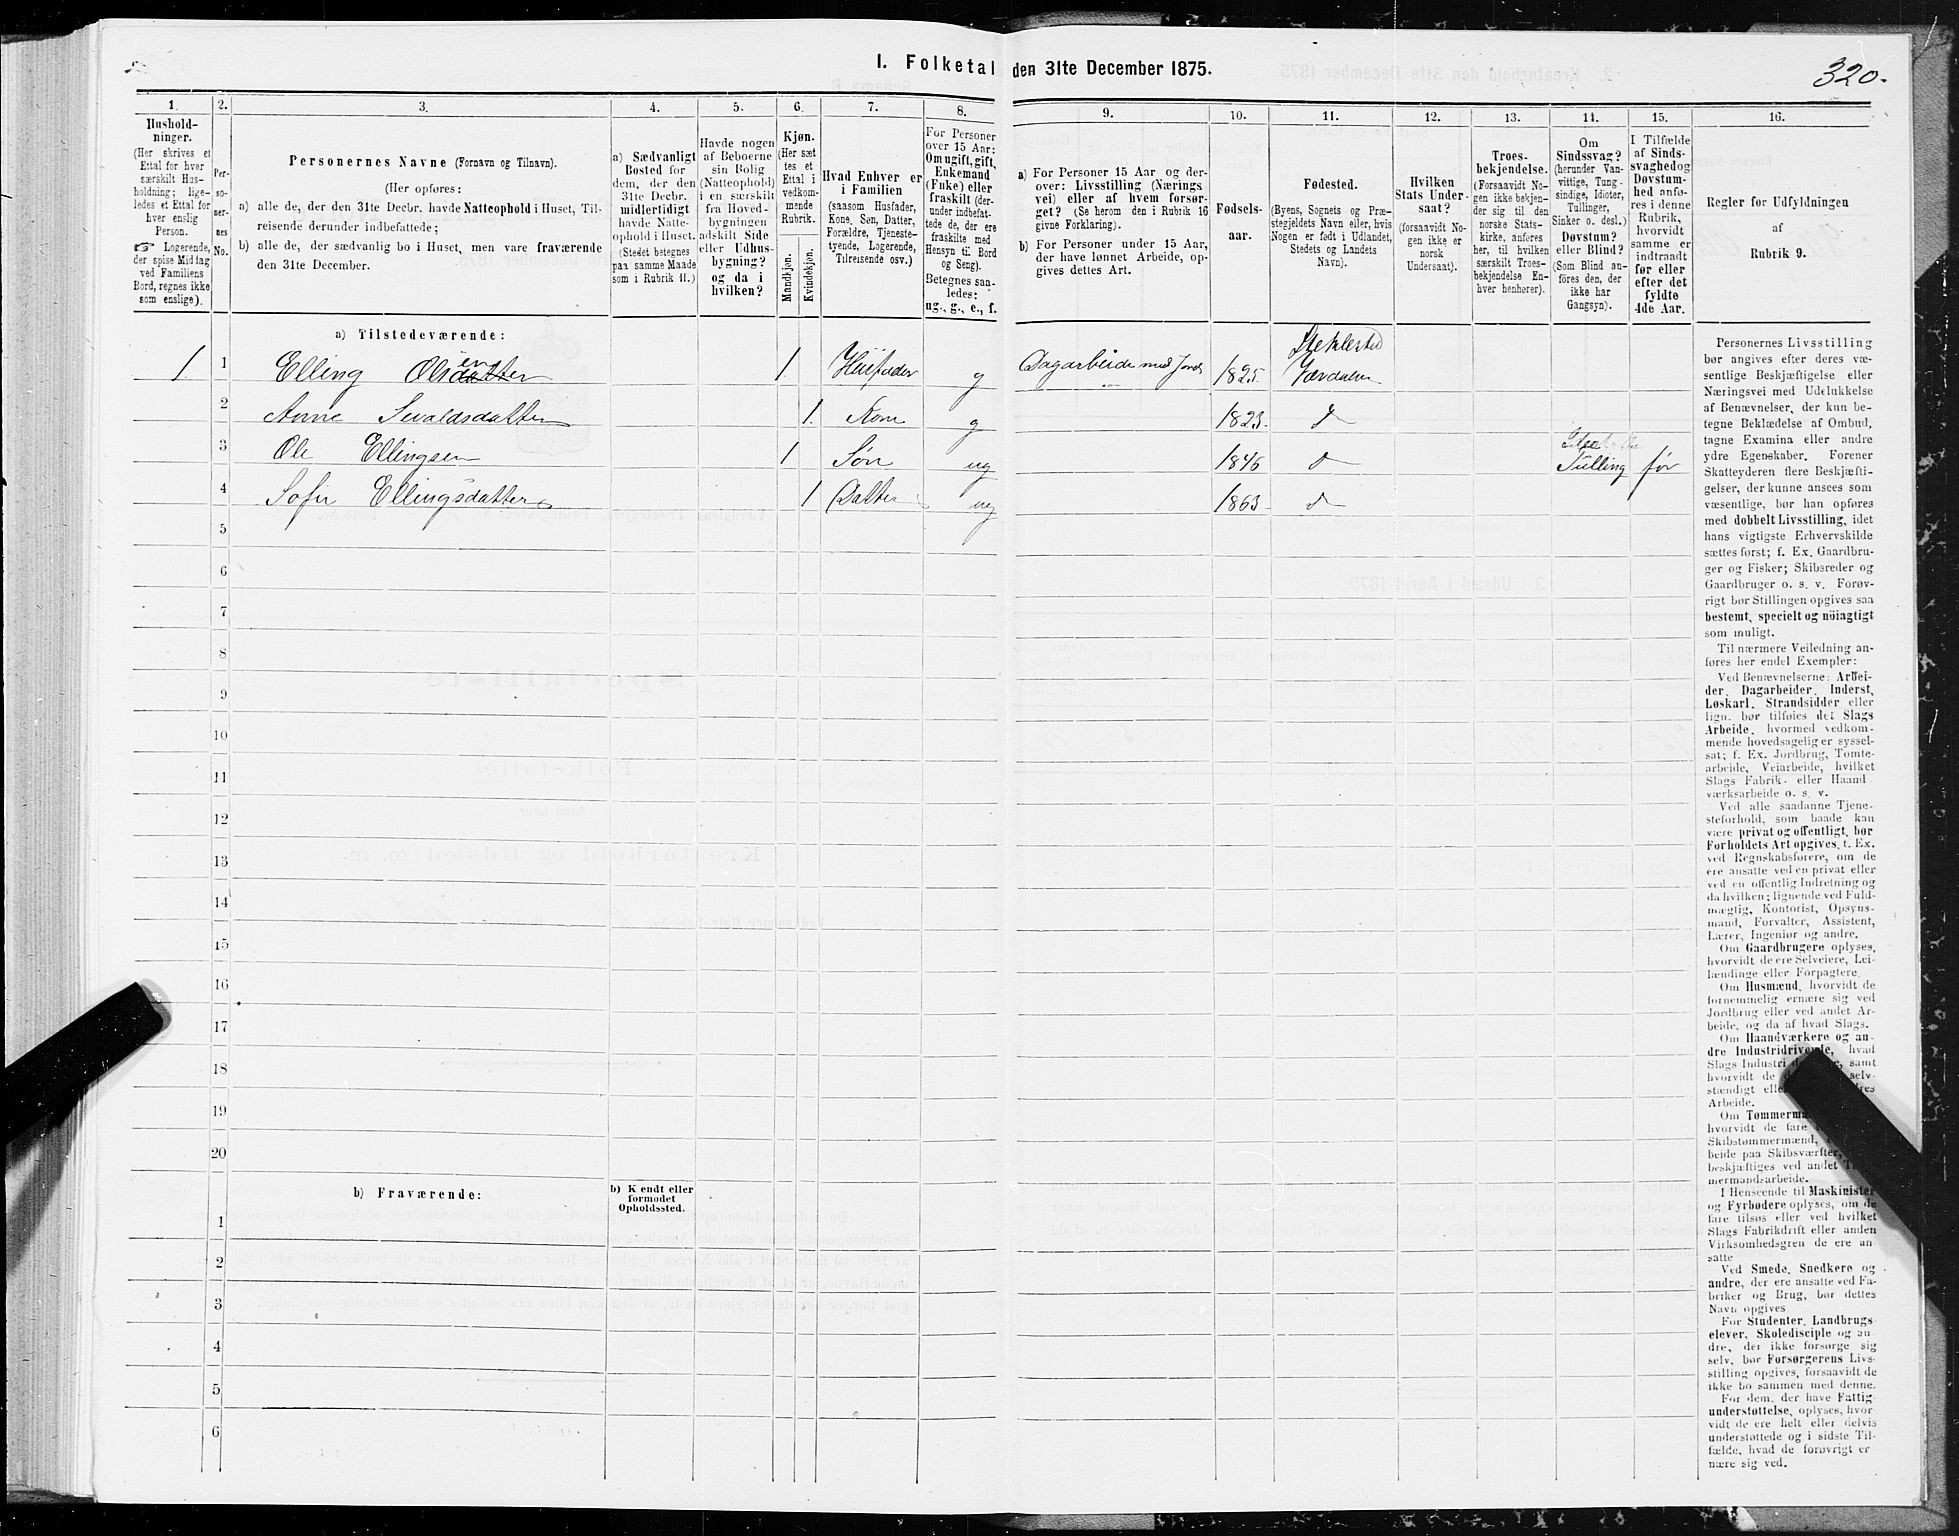 I. Folketal den 31te December 1875.
320.
1.
Hushold-
ninger.
(Her skrives et
Ettal for hver
særskilt Hus-
holdning; lige-
ledes et Ettal for
hver enslig
Person.
☞ Logerende,
der spise Middag
ved Familiens
Bord, regnes ikke
som enslige).
2.
Per-
so-
ner-
nes
No.
3.
Personernes Navne (Fornavn og Tilnavn).
(Her opføres:
a) alle de, der den 31te Decbr. havde Natteophold i Huset, Til-
reisende derunder indbefattede;
b) alle de, der sædvanlig bo i Huset, men vare fraværende
den 31te December.
4.
a) Sædvanligt
Bosted for
dem, der den
31te Decbr.
midlertidigt
havde Natte-
ophold i Huset.
(Stedet betegnes
paa samme Maade
som i Rubrik 11.)
5.
Havde nogen
af Beboerne
sin Bolig
(Natteophold)
i en særskilt
fra Hoved-
bygningen
adskilt Side
eller Udhus-
bygning?
og da i
hvilken?
6.
Kjøn.
(Her sæt
tes et
Ettal i
vedkom-
mende
Rubrik.
Mandkjøn.
Kvindekjøn.
7.
Hvad Enhver er
i Familien
(saasom Husfader,
Kone, Søn, Datter,
Forældre, Tjeneste-
tyende, Logerende,
Tilreisende osv.)
8.
For Personer
over 15 Aar:
Om ugift, gift,
Enkemand
(Enke) eller
fraskilt (der-
under indbefat-
tede de, der ere
fraskilte med
Hensyn til Bord
og Seng).
Betegnes saa-
ledes:
ug., g., e., f.
9.
a) For Personer 15 Aar og der-
over: Livsstilling (Nærings
vei) eller af hvem forsør-
get? (Se herom den i Rubrik 16
givne Forklaring).
b) For Personer under 15 Aar,
der have lønnet Arbeide, op-
gives dettes Art.
10.
Fødsels-
aar.
11.
Fødested.
(Byens, Sognets og Præ-
stegjeldets Navn eller, hvis
Nogen er født i Udlandet,
Stedets og Landets
Navn).
12.
Hvilken
Stats Under-
saat?
(forsaavidt No-
gen ikke er
norsk
Undersaat).
13.
Troes-
bekjendelse.
(Forsaavidt No-
gen ikke bekjen-
der sig til den
norske Stats-
kirke, anføres
her, til hvilken
særskilt Troes-
bekjendelse En-
hver henhører).
14.
Om
Sindssvag?
(herunder Van-
vittige, Tung-
sindige, Idioter,
Tullinger,
Sinker o. desl.)
Døvstum?
eller Blind?
(Som Blind an-
føres den, der
ikke har
Gangsyn).
15.
I Tilfælde
af Sinds-
svaghed og
Døvstum-
hed anfø-
res i denne
Rubrik,
hvorvidt
samme er
indtraadt
før eller
efter det
fyldte
4de Aar.
16.
Regler for Udfyldningen
af
Rubrik 9.
a) Tilstedeværende:
Steklestad
1 1 Elling Olsdatter en 1 Husfader g Dagarbeide med Jord 1825. Værdalen
2 Anne Sivaldsdatter 1. Kone g 1823. d
3 Ole Ellingsen 1 Søn ug 1846 d Tulling før
4 Sofie Ellingsdatter 1 Datter ug 1863 d
5
6
7
8
9
10
11
12
13
14
15
16
17
18
19
20
b) Fraværende:
b) Kjendt eller
formodet
Opholdssted.
1
2
3
4
5
6
Personernes Livsstilling
bør angives efter deres væ-
sentlige Beskjæftigelse eller
Næringsvei med Udelukkelse
af Benævnelser, der kun be-
tegne Beklædelse af Ombud,
tagne Examina eller andre
ydre Egenskaber. Forener
Skatteyderen flere Beskjæfti-
gelser, der kunne ansees som
væsentlige, bør han opføres
med dobbelt Livsstilling, idet
hans vigtigste Erhvervskilde
sættes først; f. Ex. Gaardbru-
ger og Fisker; Skibsreder og
Gaardbruger o. s. v. Forøv-
rigt bør Stillingen opgives saa
bestemt, specielt og nöiagtigt
som muligt.
Til nærmere Veiledning an-
føres her endel Exempler:
Ved Benævnelserne: Arbei-
der, Dagarbeider, Inderst,
Løskarl, Strandsidder eller
lign. bør tilføies det Slags
Arbeide, hvormed vedkom-
mende hovedsagelig er syssel-
sat; f. Ex. Jordbrug, Tomte-
arbeide, Veiarbeide, hvilket
Slags Fabrik- eller Haand
værksarbeide o. s. v.
Ved alle saadanne Tjene-
steforhold, som baade kan
være privat og offentligt, bør
Forholdets Art opgives, f. Ex.
ved Regnskabsførere, om de
ere ansatte ved en privat eller
ved en offentlig Indretning og
da hvilken; lignende ved Fuld-
mægtig, Kontorist, Opsyns-
mand, Forvalter, Assistent,
Lærer, Ingeniør og andre.
Om Gaardbrugere oplyses,
hvorvidt de ere Selveiere, Lei-
lændinge eller Forpagtere.
Om Husmænd, hvorvidt de
fornemmelig ernære sig ved
Jordbrug eller ved andet Ar-
beide, og da af hvad Slags.
Om Haandværkere og an-
dre Industridrivende, hvad
Slags Industri samt
hvorvidt de selv-
stændigt
Arbeide.
Om
hvorvidt de fare
Skibstømmermænd,
beide paa Skibsværfter,
beskjæftiges ved andet
mermandsarbeide.
I Henseende til Maskinister
og Fyrbødere oplyses, om de
fare tilsøs eller ved hvilket
Slags Fabrikdrift eller anden
Virksomhedsgren de ere an-
satte
Ved Smede, Snedkere og
andre, der ere ansatte ved Fa-
briker og Brug, bør dettes
Navn opgives
For Studenter, Landbrugs
elever, Skoledisciple og an-
dre, der ikke forsørge sig
selv, bør Forsørgerens Livs-
stilling opgives, forsaavidt de
ikke bo sammen med denne.
For dem, der have Fattig-
understøttelse, oplyses, hvor-
vidt de ere helt eller delvis
understøttede og i sidste Til-
fælde, hvad de forøvrigt er
nære sig ved.